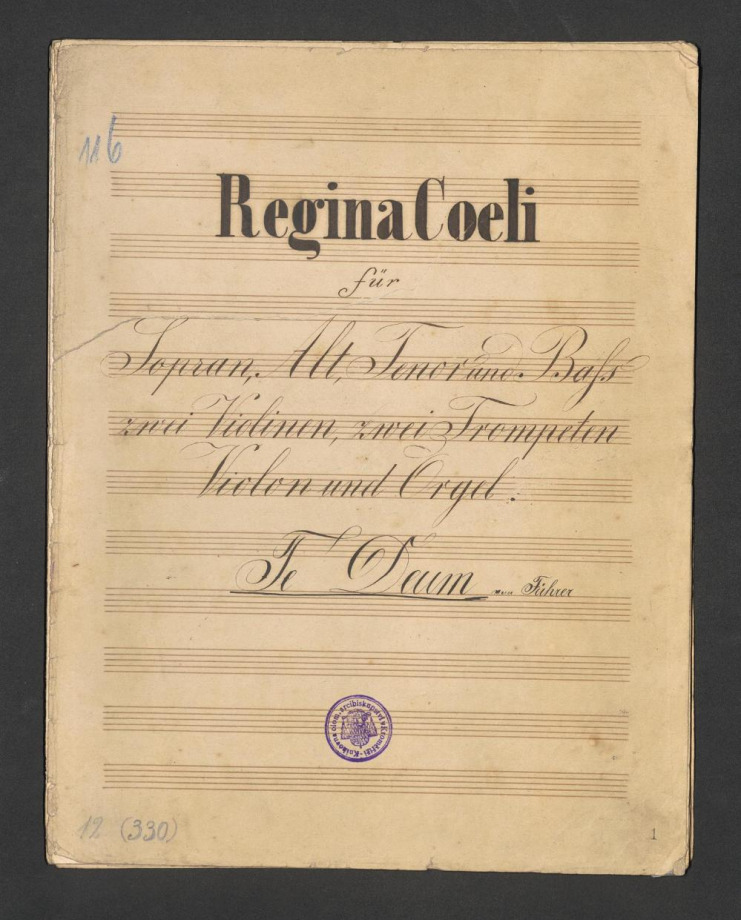 116
Regina Coeli
für
Sopran, Alt, Tenor und Baſs
zwei Violinen, zwei Trompeten
Violon und Orgel.
Te Deum von Führer
12 (330)
1